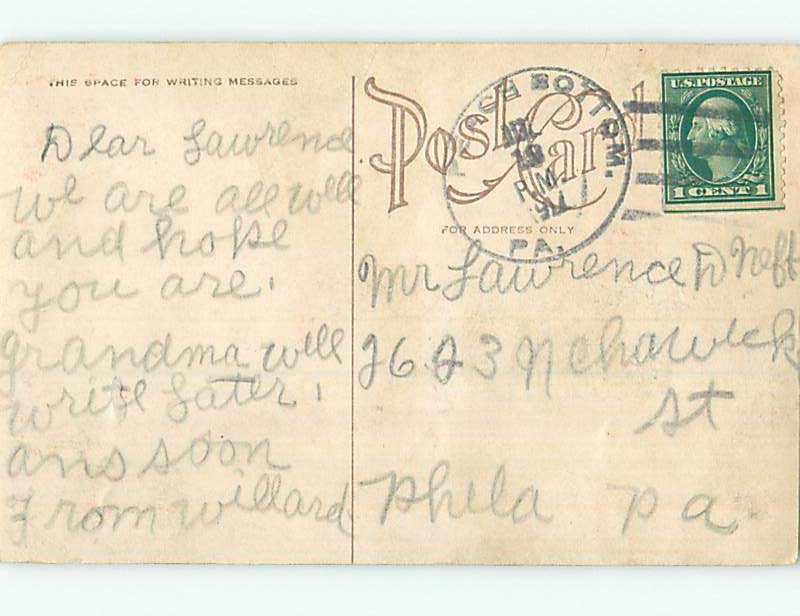 THIS SPACE FOR WRITING MESSAGES
Dear Lawrence
we are all well
and hope
you are.
grandma will
write Later.
ans soon
From Willard
Post Card
FOR ADDRESS ONLY
BOTTOM.
19
P.M.
PA.
U.S. POSTAGE
1 CENT 1
Mr Lawrence D Neft
2623 N chawick
st
Phila Pa.